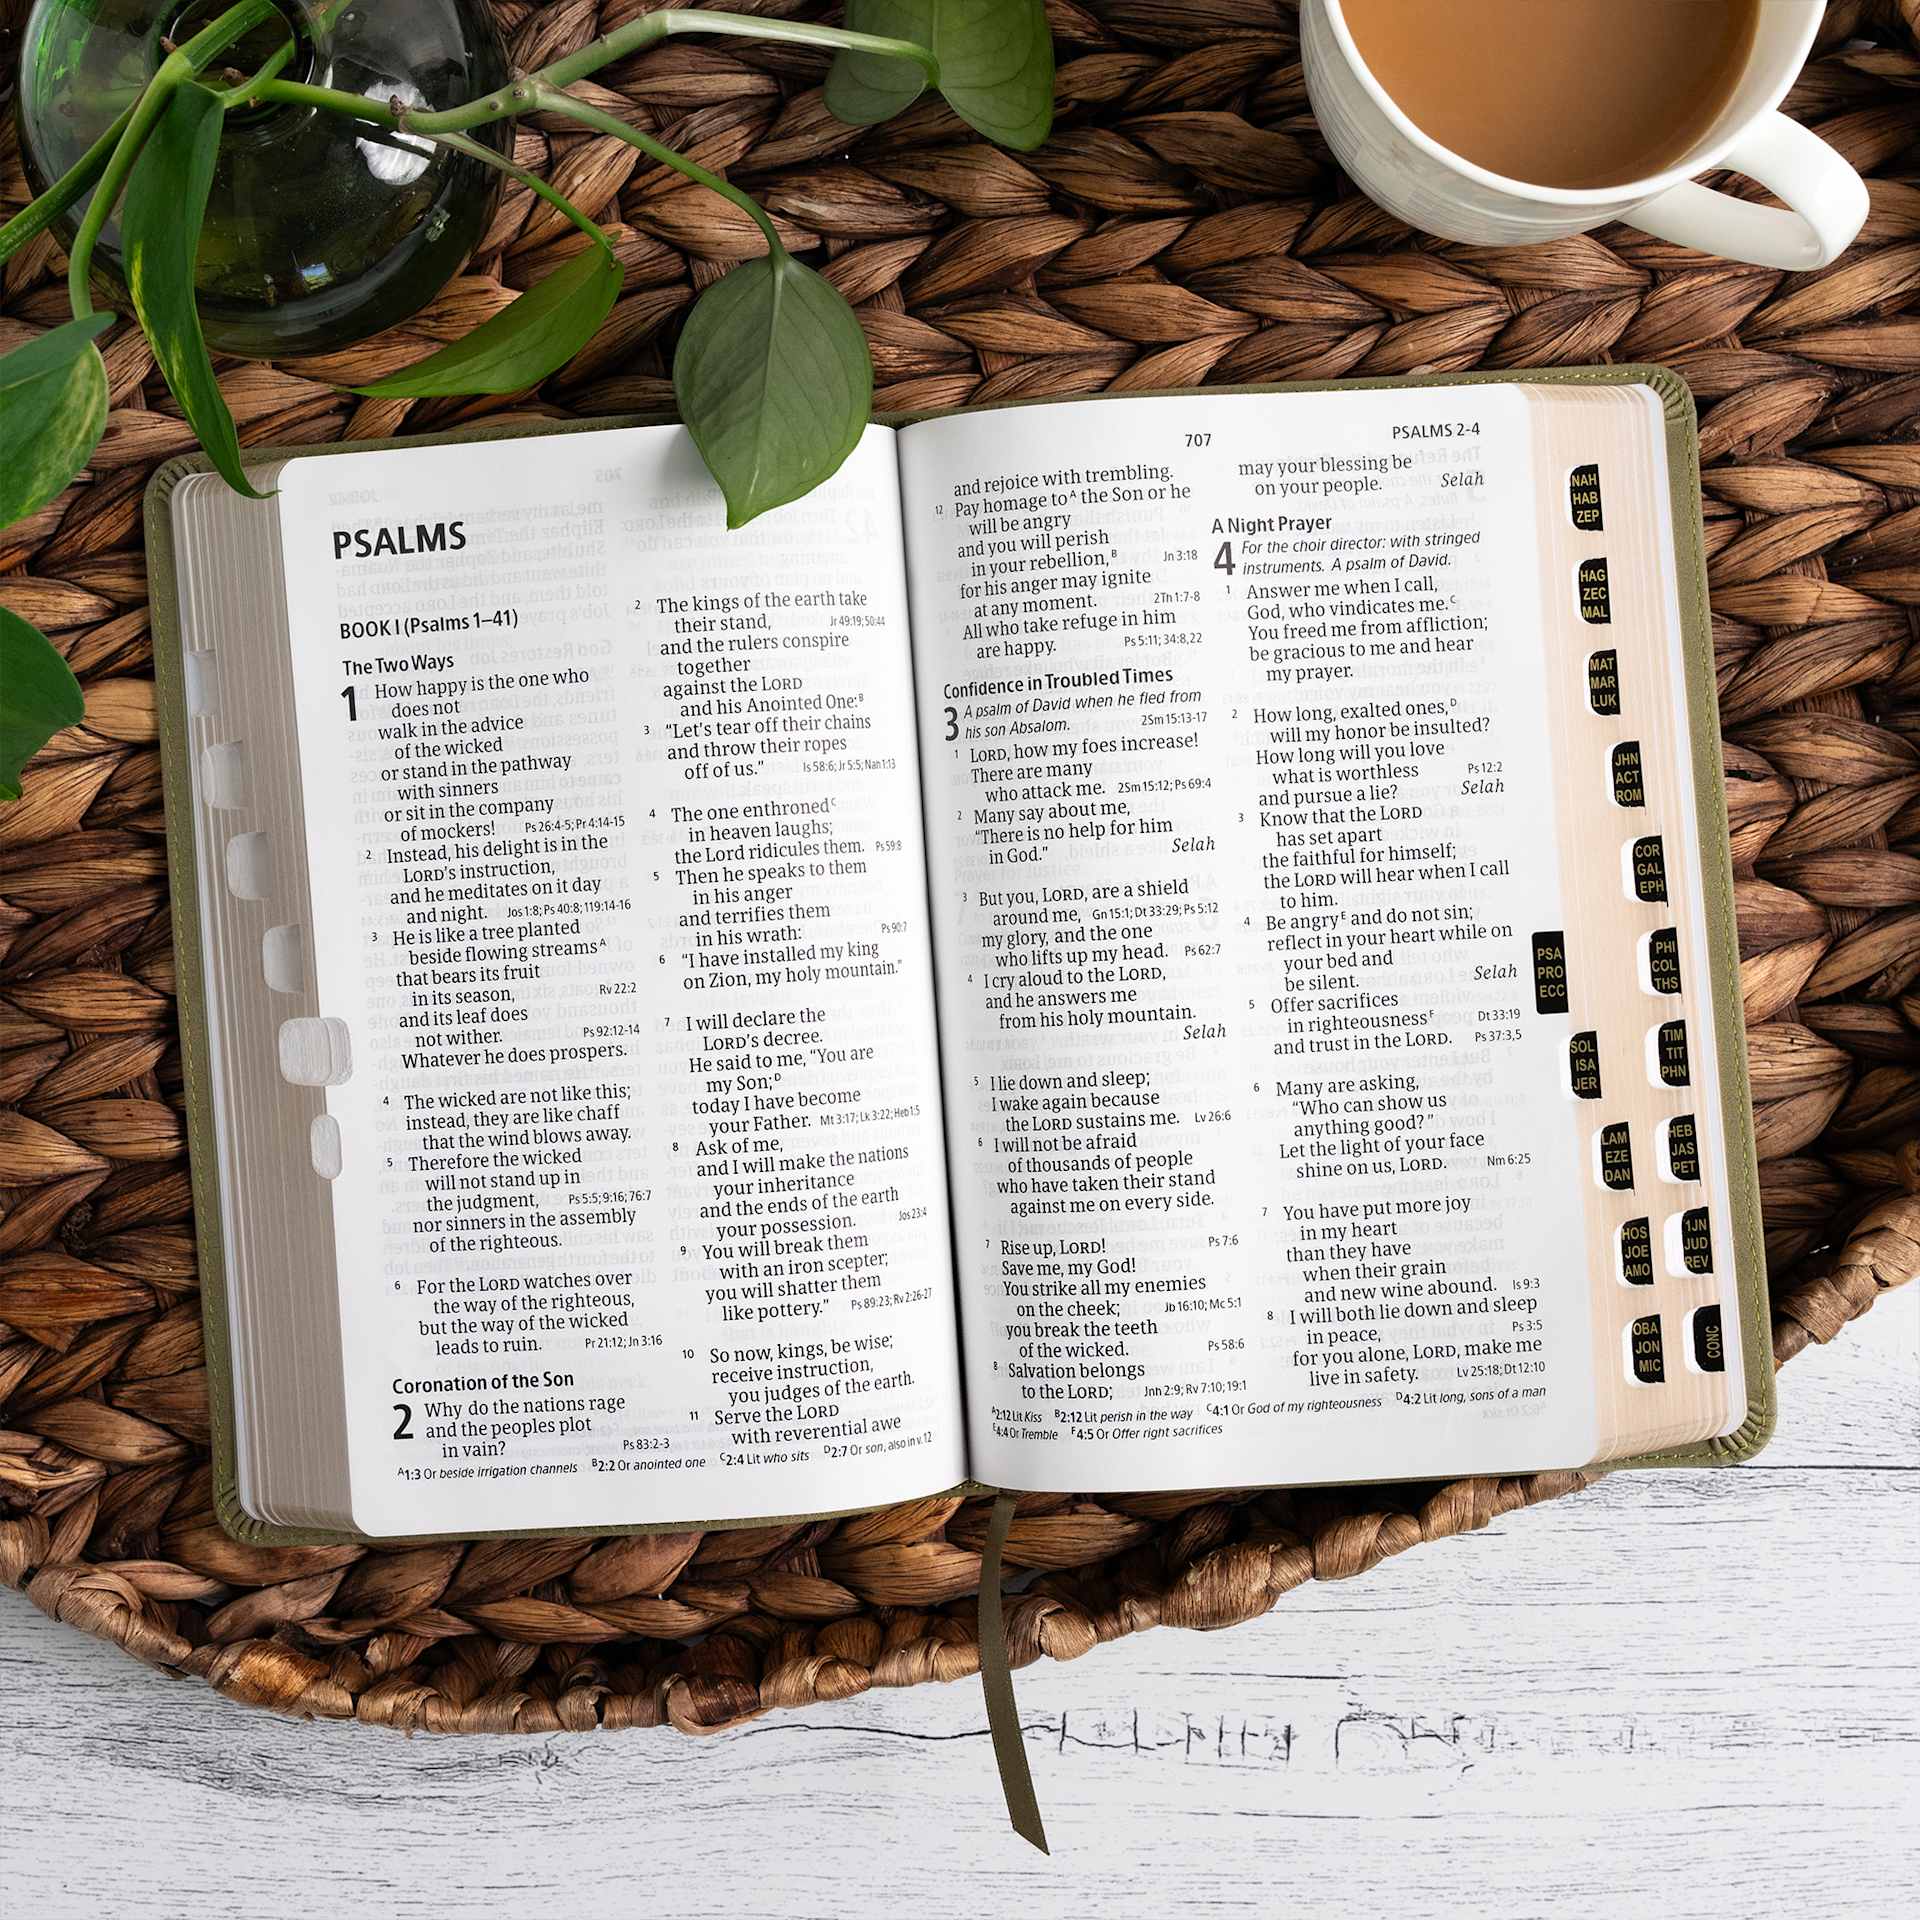 PSALMS
BOOK I (Psalms 1–41)
The Two Ways
1 How happy is the one who
does not
walk in the advice
of the wicked
or stand in the pathway
with sinners
or sit in the company
of mockers! Ps 26:4-5; Pr 4:14-15
2 Instead, his delight is in the
LORD's instruction,
and he meditates on it day
and night. Jos 1:8; Ps 40:8; 119:14-16
3 He is like a tree planted
beside flowing streams A
that bears its fruit
in its season, Rv 22:2
and its leaf does
not wither. Ps 92:12-14
Whatever he does prospers.
4 The wicked are not like this;
instead, they are like chaff
that the wind blows away.
5 Therefore the wicked
will not stand up in
the judgment, Ps 5:5; 9:16; 76:7
nor sinners in the assembly
of the righteous.
6 For the LORD watches over
the way of the righteous,
but the way of the wicked
leads to ruin. Pr 21:12; Jn 3:16
Coronation of the Son
2 Why do the nations rage
and the peoples plot
in vain? Ps 83:2-3
2 The kings of the earth take
their stand, Jr 49:19; 50:44
and the rulers conspire
together
against the LORD
and his Anointed One: B
3 “Let's tear off their chains
and throw their ropes
off of us.” Is 58:6; Jr 5:5; Nah 1:13
4 The one enthroned C
in heaven laughs;
the Lord ridicules them. Ps 59:8
5 Then he speaks to them
in his anger
and terrifies them
in his wrath: Ps 90:7
6 “I have installed my king
on Zion, my holy mountain.”
7 I will declare the
LORD's decree.
He said to me, “You are
my Son; D
today I have become
your Father. Mt 3:17; Lk 3:22; Heb 1:5
8 Ask of me,
and I will make the nations
your inheritance
and the ends of the earth
your possession. Jos 23:4
9 You will break them
with an iron scepter;
you will shatter them
like pottery.” Ps 89:23; Rv 2:26-27
10 So now, kings, be wise;
receive instruction,
you judges of the earth.
11 Serve the LORD
with reverential awe
A 1:3 Or beside irrigation channels B 2:2 Or anointed one C 2:4 Lit who sits D 2:7 Or son, also in v. 12
707 PSALMS 2-4
and rejoice with trembling.
12 Pay homage to A the Son or he
will be angry
and you will perish
in your rebellion, B Jn 3:18
for his anger may ignite
at any moment. 2Th 1:7-8
All who take refuge in him
are happy. Ps 5:11; 34:8,22
Confidence in Troubled Times
3 A psalm of David when he fled from
his son Absalom. 2Sm 15:13-17
1 LORD, how my foes increase!
There are many
who attack me. 2Sm 15:12; Ps 69:4
2 Many say about me,
“There is no help for him
in God.” Selah
3 But you, LORD, are a shield
around me, Gn 15:1; Dt 33:29; Ps 5:12
my glory, and the one
who lifts up my head. Ps 62:7
4 I cry aloud to the LORD,
and he answers me
from his holy mountain.
Selah
5 I lie down and sleep;
I wake again because
the LORD sustains me. Lv 26:6
6 I will not be afraid
of thousands of people
who have taken their stand
against me on every side.
7 Rise up, LORD! Ps 7:6
Save me, my God!
You strike all my enemies
on the cheek; Jb 16:10; Mc 5:1
you break the teeth
of the wicked. Ps 58:6
8 Salvation belongs
to the LORD; Jnh 2:9; Rv 7:10; 19:1
may your blessing be
on your people. Selah
A Night Prayer
4 For the choir director: with stringed
instruments. A psalm of David.
1 Answer me when I call,
God, who vindicates me. C
You freed me from affliction;
be gracious to me and hear
my prayer.
2 How long, exalted ones, D
will my honor be insulted?
How long will you love
what is worthless Ps 12:2
and pursue a lie? Selah
3 Know that the LORD
has set apart
the faithful for himself;
the LORD will hear when I call
to him.
4 Be angry E and do not sin;
reflect in your heart while on
your bed and
be silent. Selah
5 Offer sacrifices
in righteousness F Dt 33:19
and trust in the LORD. Ps 37:3,5
6 Many are asking,
“Who can show us
anything good?”
Let the light of your face
shine on us, LORD. Nm 6:25
7 You have put more joy
in my heart
than they have
when their grain
and new wine abound. Is 9:3
8 I will both lie down and sleep
in peace, Ps 3:5
for you alone, LORD, make me
live in safety. Lv 25:18; Dt 12:10
A 2:12 Lit Kiss B 2:12 Lit perish in the way C 4:1 Or God of my righteousness D 4:2 Lit long, sons of a man
E 4:4 Or Tremble F 4:5 Or Offer right sacrifices
PSA
PRO
ECC
SOL
ISA
JER
LAM
EZE
DAN
HOS
JOE
AMO
OBA
JON
MIC
NAH
HAB
ZEP
HAG
ZEC
MAL
MAT
MAR
LUK
JHN
ACT
ROM
COR
GAL
EPH
PHI
COL
THS
TIM
TIT
PHN
HEB
JAS
PET
1JN
JUD
REV
CONC